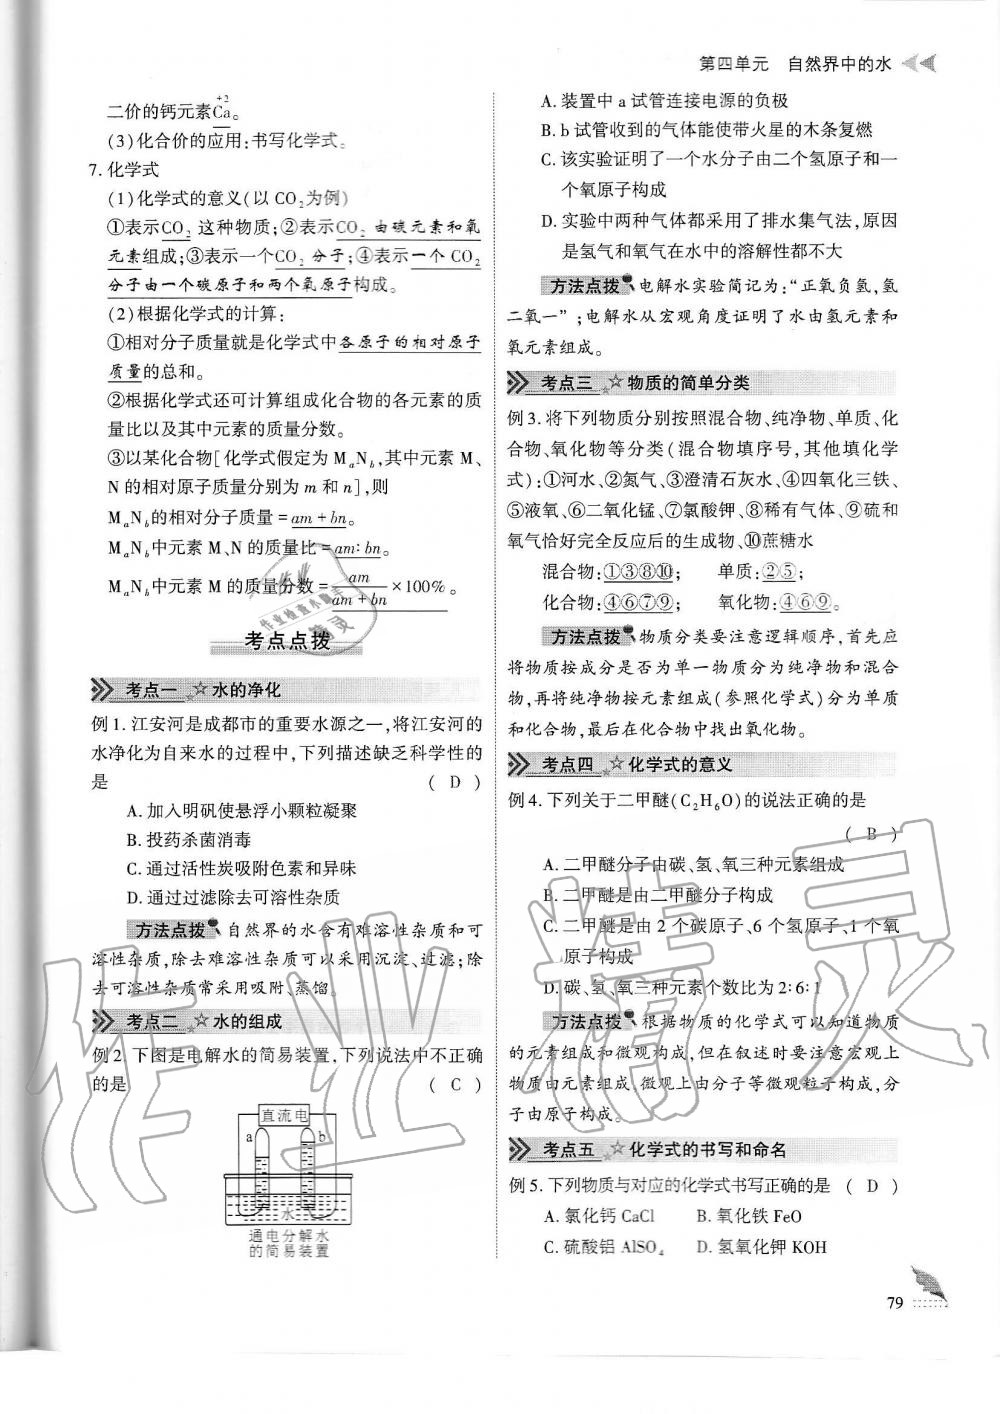 第四单元 自然界中的水
二价的钙元素C͟a͟(+2)。
(3)化合价的应用:书写化学式。
7. 化学式
(1)化学式的意义(以 CO₂为例)
①表示CO₂ 这种物质;②表示CO₂ 由碳元素和氧
元素组成;③表示一个CO₂ 分子;④表示一个 CO₂
分子由一个碳原子和两个氧原子构成。
(2)根据化学式的计算:
①相对分子质量就是化学式中各原子的相对原子
质量的总和。
②根据化学式还可计算组成化合物的各元素的质
量比以及其中元素的质量分数。
③以某化合物[化学式假定为 MₐN_b,其中元素 M、
N 的相对原子质量分别为 m 和 n],则
MₐN_b的相对分子质量=am+bn。
MₐN_b中元素 M、N 的质量比=am:bn。
MₐN_b中元素 M 的质量分数=am/(am+bn)×100%。
考点点拨
考点一 ☆水的净化
例 1. 江安河是成都市的重要水源之一,将江安河的
水净化为自来水的过程中,下列描述缺乏科学性的
是 ( D )
A. 加入明矾使悬浮小颗粒凝聚
B. 投药杀菌消毒
C. 通过活性炭吸附色素和异味
D. 通过过滤除去可溶性杂质
方法点拨 自然界的水含有难溶性杂质和可
溶性杂质,除去难溶性杂质可以采用沉淀、过滤;除
去可溶性杂质常采用吸附、蒸馏。
考点二 ☆水的组成
例 2. 下图是电解水的简易装置,下列说法中不正确
的是 ( C )
直流电
a b
水
通电分解水
的简易装置
A. 装置中 a 试管连接电源的负极
B. b 试管收到的气体能使带火星的木条复燃
C. 该实验证明了一个水分子由二个氢原子和一
个氧原子构成
D. 实验中两种气体都采用了排水集气法,原因
是氢气和氧气在水中的溶解性都不大
方法点拨 电解水实验简记为:“正氧负氢,氢
二氧一”;电解水从宏观角度证明了水由氢元素和
氧元素组成。
考点三 ☆物质的简单分类
例 3. 将下列物质分别按照混合物、纯净物、单质、化
合物、氧化物等分类(混合物填序号,其他填化学
式):①河水、②氮气、③澄清石灰水、④四氧化三铁、
⑤液氧、⑥二氧化锰、⑦氯酸钾、⑧稀有气体、⑨硫和
氧气恰好完全反应后的生成物、⑩蔗糖水
混合物:①③⑧⑩; 单质:②⑤;
化合物:④⑥⑦⑨; 氧化物:④⑥⑨。
方法点拨 物质分类要注意逻辑顺序,首先应
将物质按成分是否为单一物质分为纯净物和混合
物,再将纯净物按元素组成(参照化学式)分为单质
和化合物,最后在化合物中找出氧化物。
考点四 ☆化学式的意义
例 4. 下列关于二甲醚(C₂H₆O)的说法正确的是
( B )
A. 二甲醚分子由碳、氢、氧三种元素组成
B. 二甲醚是由二甲醚分子构成
C. 二甲醚是由 2 个碳原子、6 个氢原子、1 个氧
原子构成
D. 碳、氢、氧三种元素个数比为 2:6:1
方法点拨 根据物质的化学式可以知道物质
的元素组成和微观构成,但在叙述时要注意宏观上
物质由元素组成,微观上由分子等微观粒子构成,分
子由原子构成。
考点五 ☆化学式的书写和命名
例 5. 下列物质与对应的化学式书写正确的是 ( D )
A. 氯化钙 CaCl B. 氧化铁 FeO
C. 硫酸铝 AlSO₄ D. 氢氧化钾 KOH
79
作业精灵